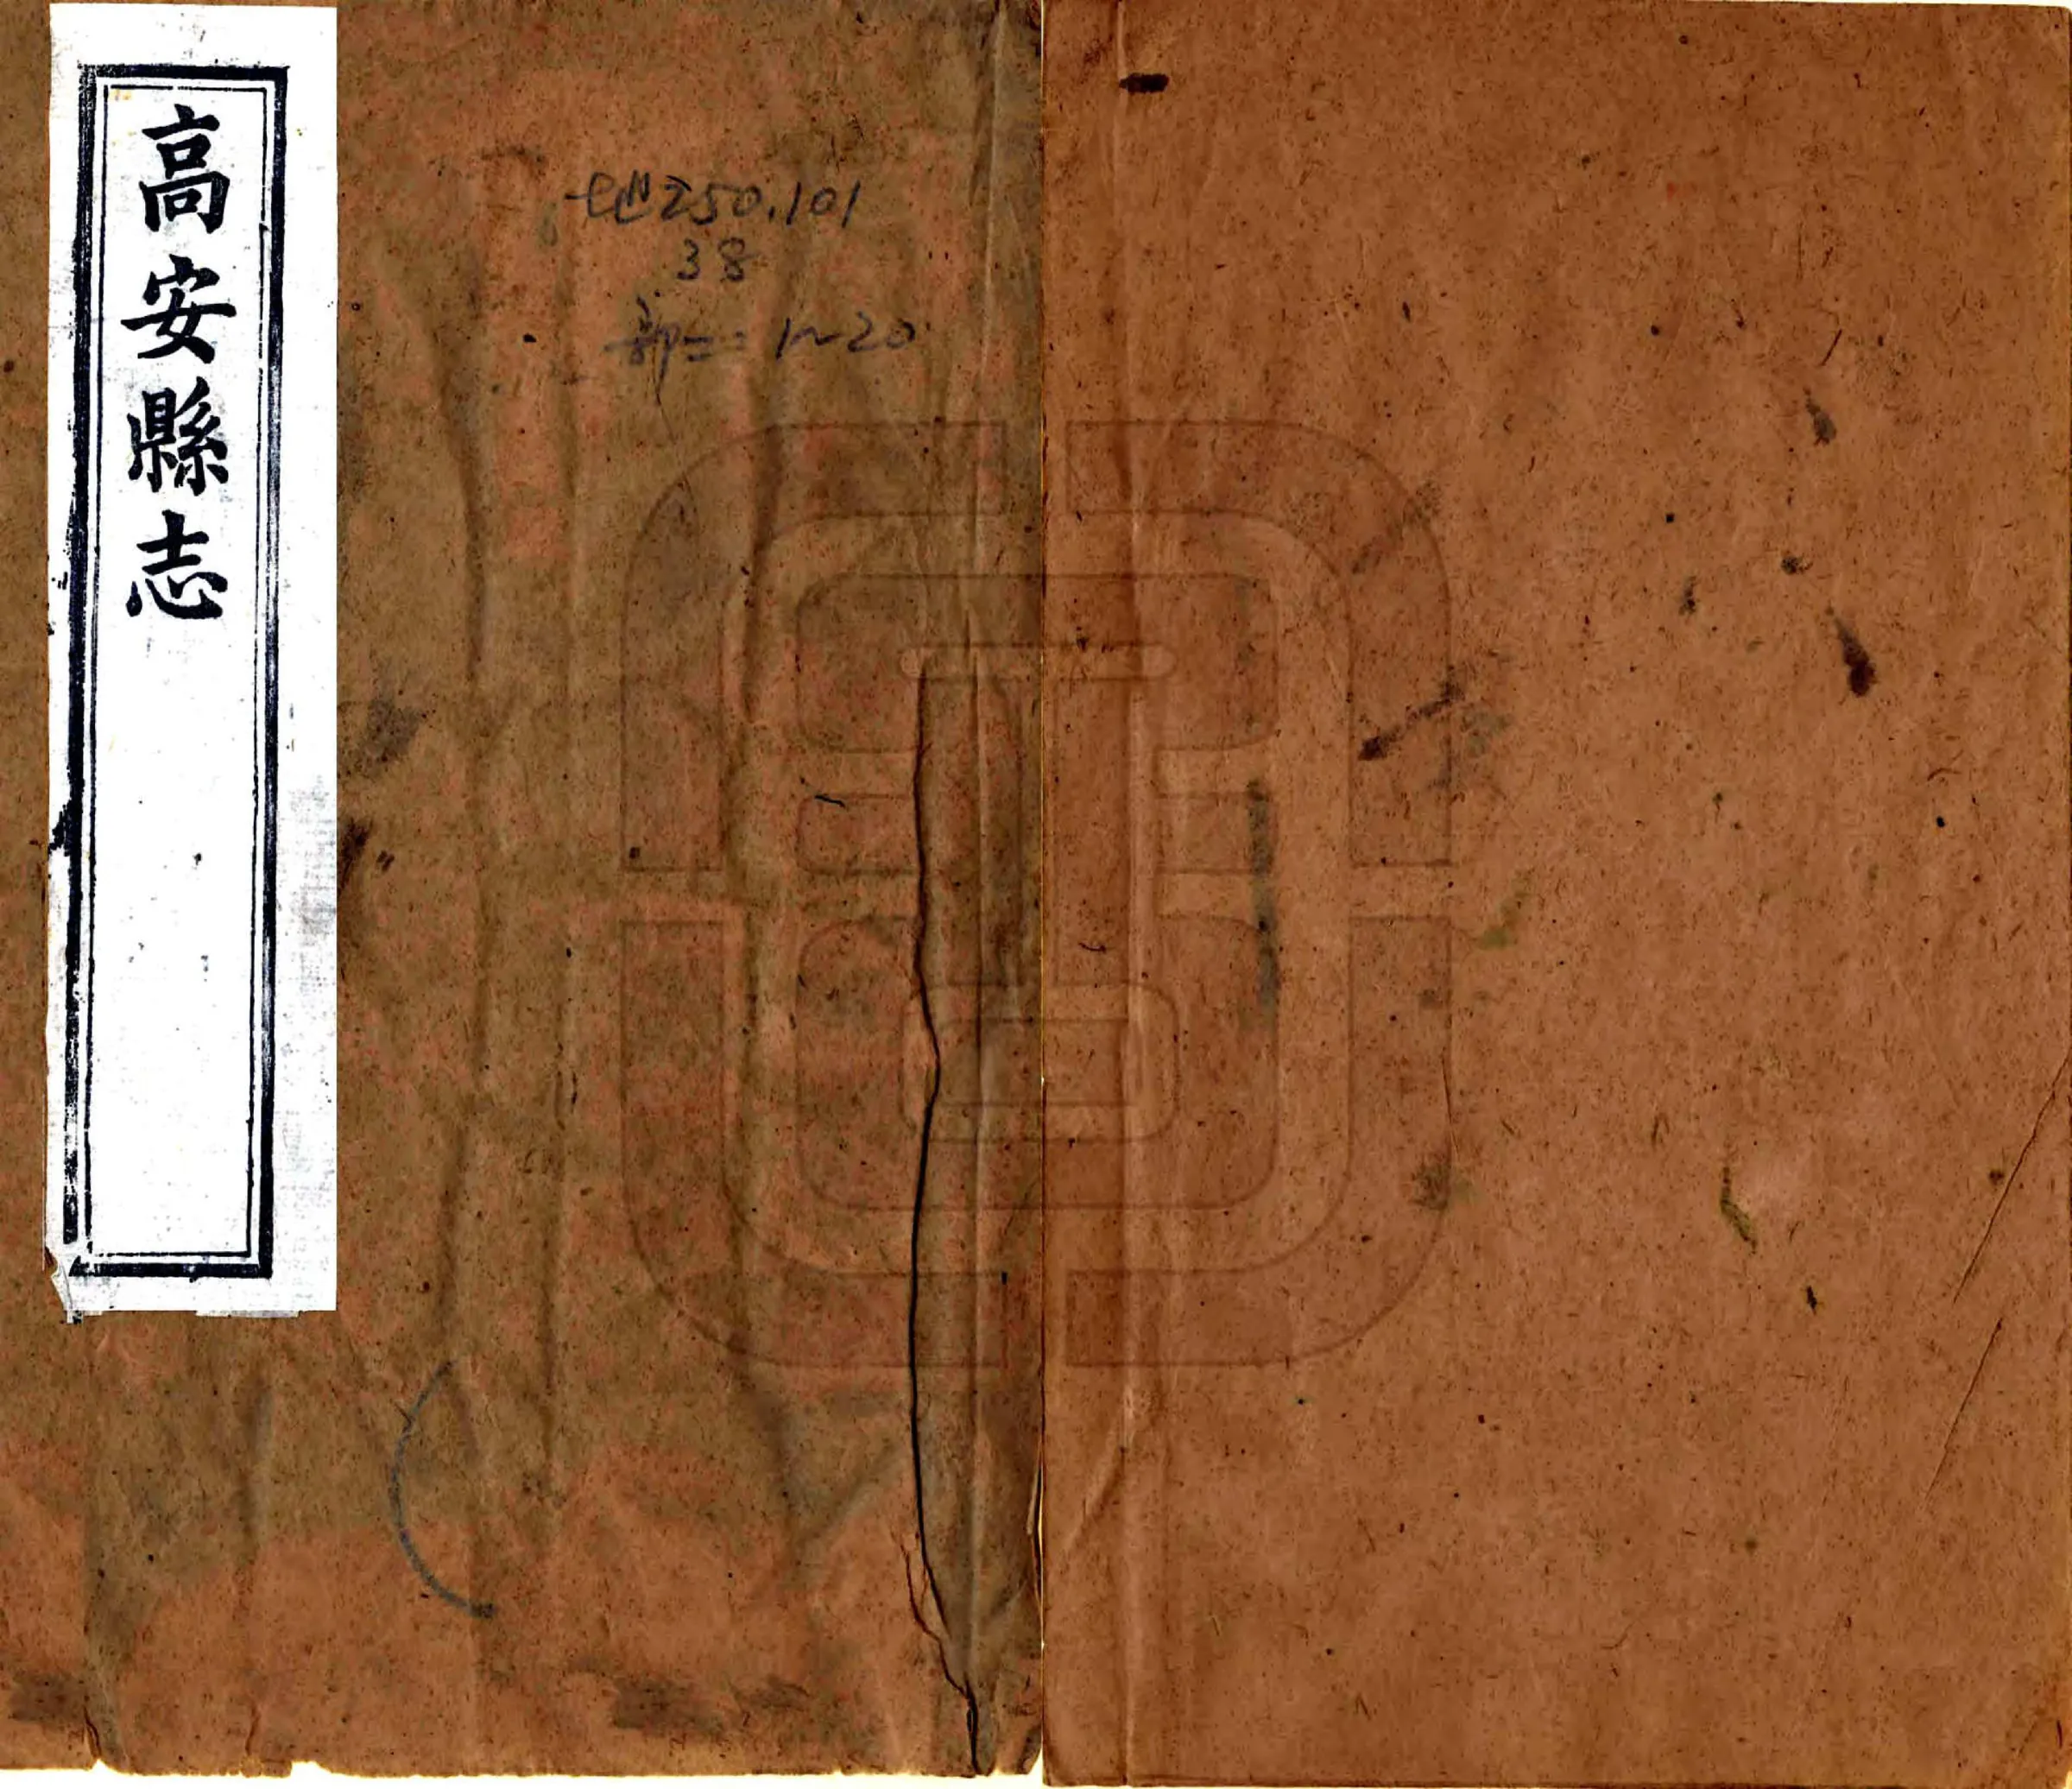 高安縣志
地250.101
38
部二：1~20